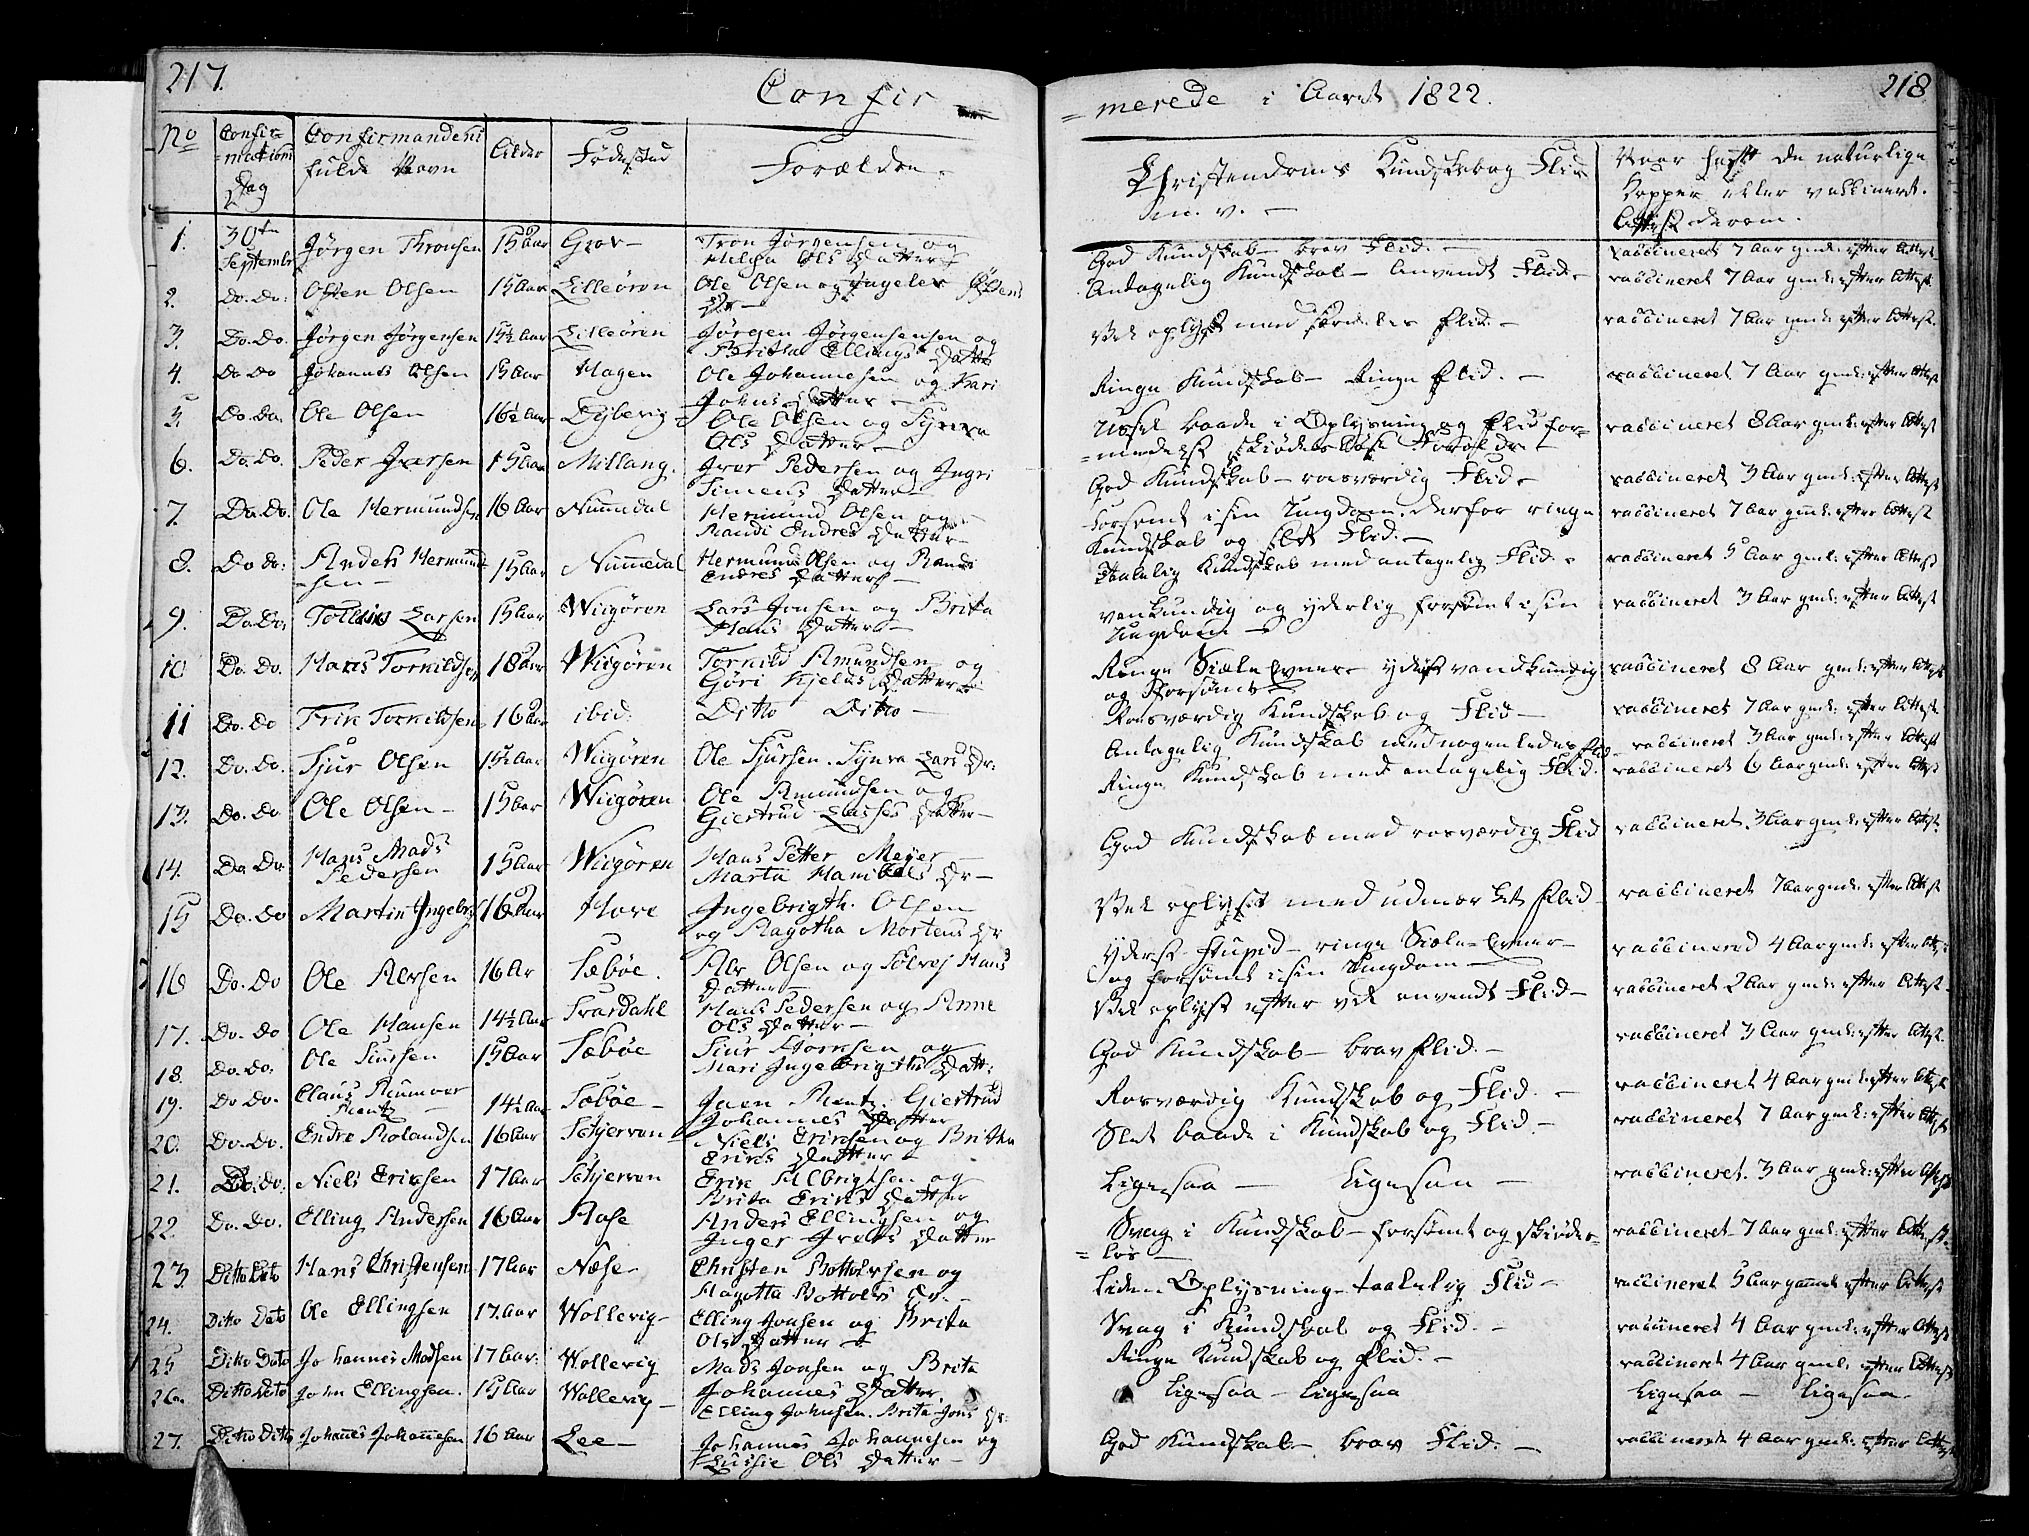 217.
Confir=
=merede i Aaret 1822.
218
No
Confir=
=mations
Dag
Confirmandens
fulde Navn
Alder
Fødested
Forældre.
Christendoms Kundskab og Flid
m. v. —
Naar havt de naturlige
Kopper eller vaccineret.
Attest derom.
1. 30te September Jørgen Thronsen 15 Aar Grov— Tron Jørgensen og
Ols Datter
God Kundskab— brav Flid.— vaccineret 7 Aar gml: efter Attest
2. Do. Do: Osten Olsen 15 Aar Lilleøren Ole Olsen og
Dr —
Antagelig Kundskab— Anvendt Flid— vaccineret 7 Aar gml: efter Attest
3. Do. Do. Jørgen Jørgensen 15½ Aar Lilleøren Jørgen Jørgensensen og
Britha Ellings Datter
Vel oplyst med Flid.— vaccineret 7 Aar gml: efter Attest.
4. Do Do Johannes Olsen 15 Aar Hagen Ole Johannesen og Kari
Johns Datter—
Ringe Kundskab— Ringe Flid.— vaccineret 7 Aar gml: efter Attest
5. Do. Do. Ole Olsen 16½ Aar Dybevig— Ole Olsen og Syneva
Ols Datter—
Ussel baade i Oplysning og Flid for=
=medelst skiødesløse Forældre—
vaccineret 8 Aar gml: efter Attest
6. Do. Do. Peder Iversen 15 Aar Millang. Iver Pedersen og Ingri
Simens Datter—
God Kundskab— rosværdig Flid— vaccineret 3 Aar gml: efter Attest
7. Do. Do. Ole Hermundsen 16 Aar Nummedal Hermund Olsen og—
Randi Endres Datter—
Forsømt i sin Ungdom, derfor ringe
Kundskab og slet Flid.—
vaccineret 7 Aar gml: efter Attest
8. Do Do: Anders Hermund=
sen— 15 Aar Nummedal Hermund Olsen og Randi
Endres Datter—
Taalelig Kundskab med antagelig Flid.— vaccineret 5 Aar gml: efter Attest
9. Do. Do. Tollens Larsen 15 Aar Wiigøren Lars Jonsen og Brita
Hans Datter—
vankundig og yderlig forsømt i sin
Ungdom—
vaccineret 3 Aar gml: efter Attest
10 Do. Do. Hans Torkildsen 18 Aar Wiigøren Torkild Amundsen og
Gøri Kjels Datter
Ringe Siæle Evner— yderst vandkundig
og forsømt
vaccineret 8 Aar gml: efter Attest
11 Do. Do Erik Torkildsen 16 Aar ibid. Ditto Ditto—
Rosværdig Kundskab og Flid— vaccineret 7 Aar gml: efter Attest
12. Do. Do. Sjur Olsen 15½ Aar Wiigøren Ole Sjursen. Synva Lars Dr:
Antagelig Kundskab med nogenledes Flid— vaccineret 3 Aar gml: efter Attest
13. Do. Do. Ole Olsen— 15 Aar Wiigøren Ole Amundsen og
Giertrud Lasses Datter—
Ringe Kundskab med antagelig Flid. vaccineret 6 Aar gml: efter Attest
14. Do. Do Hans Mads
Pedersen 15 Aar Wiigøren Hans Petter Meyer—
Marta Dr—
God Kundskab med rosværdig Flid vaccineret. 3 Aar gml: efter Attest.
15 Do. Do Martin Ingebrigts 16 Aar Hove Ingebrigth. Olsen
og Ragotha Mortens Dr
Vel oplyst med udmærket Flid vaccineret 7 Aar gml: efter Attest
16 Do. Do Ole Alvsen 16 Ar Sæbøe. Alv Olsen og Sølvej Hans
Datter—
Yderst stupid— ringe Siæle-Evner—
og forsømt i sin Ungdom—
vaccinered 4 Aar gml: efter Attest
17. Do. Do Ole Hansen 14½ Aar Svardahl Hans Pedersen og Anne
Ols Datter—
Vel oplyst efter vel anvendt Flid— vaccineret 2 Aar gml: efter Attest—
18. Do. Do. Ole Siursen 15 Aar Sæbøe Siur Storksen og
Mari Ingebrigths Datt:
God Kundskab— brav Flid.— vaccineret 3 Aar gml: efter Attest.
19. Do Do. Claus
Rentz— 14½ Aar Sæbøe— Rentz. Giertrud
Johannes Datter
Rosværdig Kundskab og Flid.— vaccineret 4 Aar gml: efter Attest
20. Do. Do. Endre Rolandsen 16 Aar Schjerven— Niels Eriksen og Britha
Eriks Datter
Slet baade i Kundskab og Flid.— vaccineret 7 Aar gml: efter Attest
21. Do. Do: Niels Eriksen 17 Aar Schjerven Erik Albrigtsen og
Brita Eriks Datter
Ligesaa— Ligesaa— vaccineret. 3 Aar gml: efter Attest
22. Do. Do. Elling Andersen 16 Aar Aase Anders Ellingsen og
Inger Datter
Svag i Kundskab— forsømt og skiødes=
=løs—
vaccineret 7 Aar gml: efter Attest.
23 Ditto Dito Hans Christensen 17 Aar Næse— Christen Bottolvsen og
Magotta Bottolvs Dr.—
Liden Oplysning— taalelig Flid— vaccineret 5 Aar gammel efter Attest
24. Ditto Dito Ole Ellingsen 17. Aar Wollevig— Elling Jonsen og Brita
Ols Datter
Svag i Kundskab og Flid.— vaccineret 4 Aar gml: efter Attest
25 Ditto Dito Johannes Madsen 17 Aar: Wollevig Mads Jonsen og Brita
Johannes Datter.
Ringe Kundskab og Flid.— vaccineret 4 Aar gml: efter Attest
26. Ditto Dito John Ellingsen. 15 Aar Wollevig— Elling Johnsen. Brita Jons Dr:
Ligesaa— Ligesaa Ligesaa— Ligesaa.
27. Ditto Ditto Johannes Johannesen 16 Aar Lee— Johannes Johannesen og
Lussie Ols Datter—
God Kundskab— brav Flid.— vaccineret 4 Aar gml: efter Attest